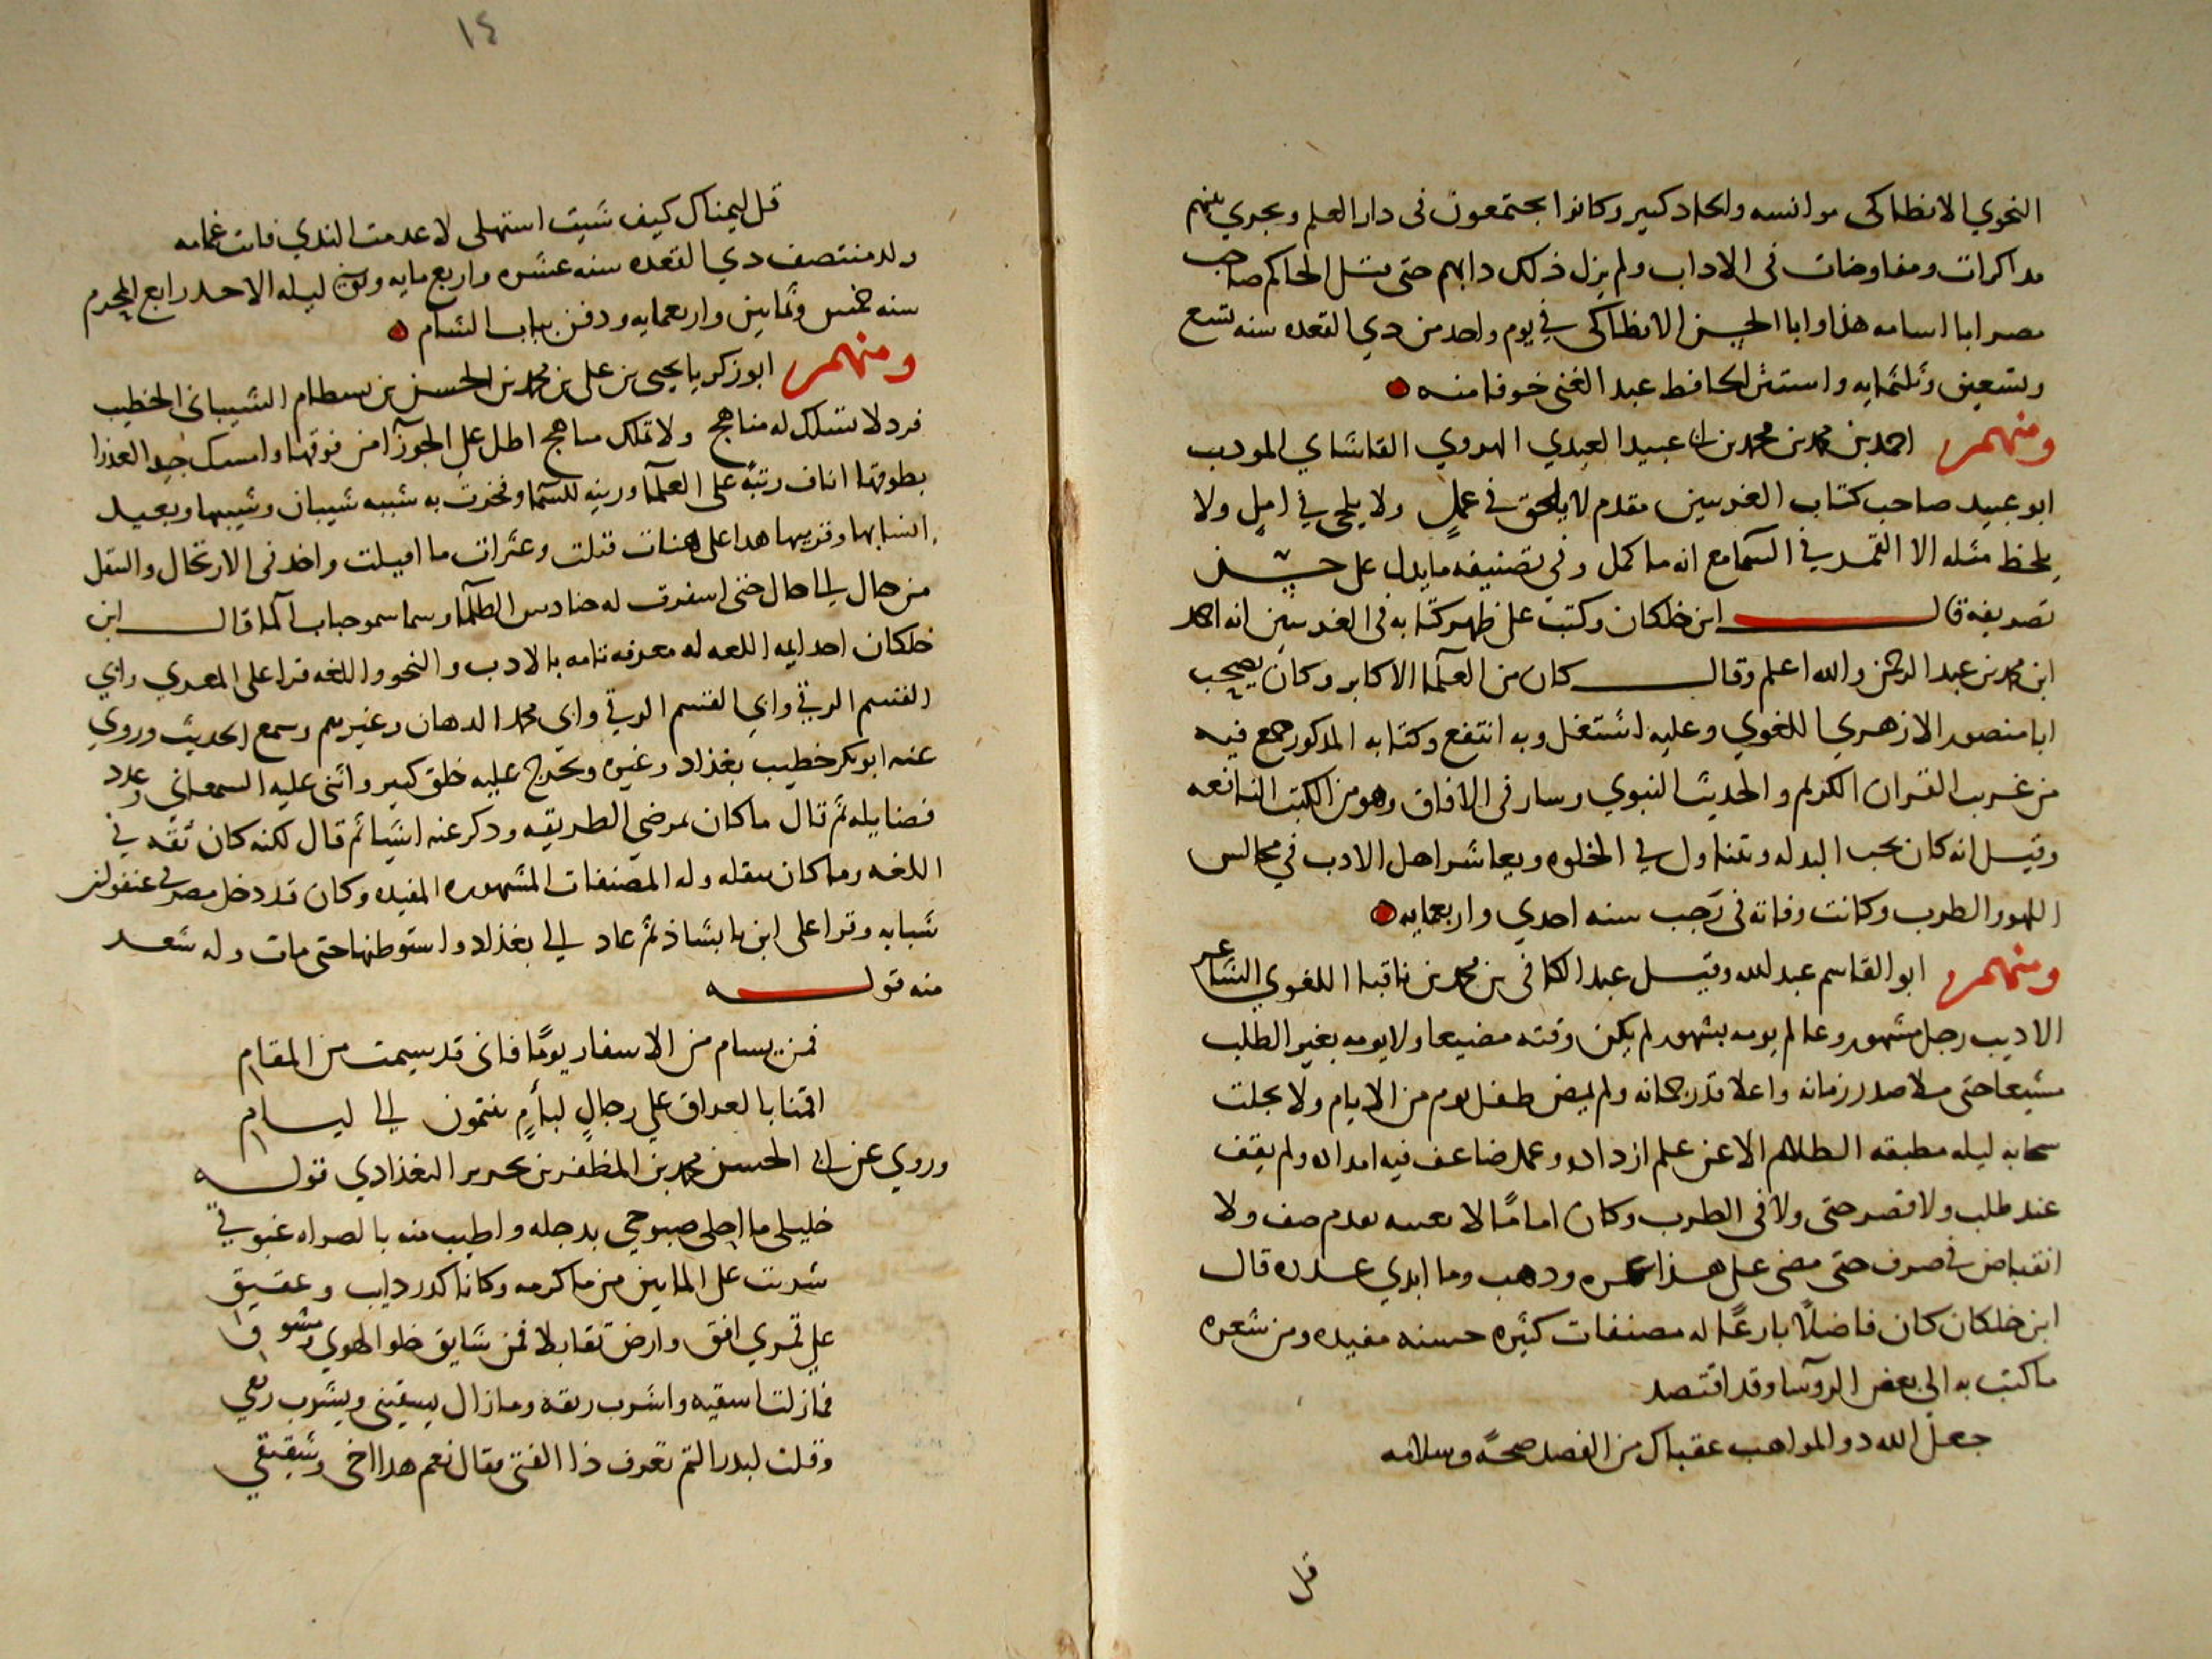 النحوي الانطاكي موانسه واتحاد كبير وكانوا يجتمعون في دار العلم ويجري بينهم
مداكرات ومفاوضات في الاداب ولم يزل ذلك دابهم حتى قتل الحاكم صاحب
مصر ابا اسامه هذا وابا الحسن الانطاكي في يوم واحد من دي القعده سنه تسع
وتسعين وثلثمايه واستتر الحافظ عبد الغني خوفا منه
ومنهم احمد بن محمد بن محمد بن ابي عبيد العبدي الهروي القاشاي المودب
ابو عبيد صاحب كتاب الغريبين مقدم لا يلحق في عمل ولا يلحى في امل ولا
يلحظ مثله الا القمر في السما مع انه ما كمل وفي تصنيفه ما يدل على حسن
تصريفه قال ابن خلكان وكتبت على ظهر كتابه في الغريبين انه احمد
ابن محمد بن عبد الرحمن والله اعلم وقال كان من العلما الاكابر وكان يصحب
ابا منصور الازهري اللغوي وعليه اشتغل وبه انتفع وكتابه المدكور جمع فيه
من غريب القران الكريم والحديث النبوي وسار في الافاق وهو من الكتب النافعه
وقيل انه كان يحب البدله ويتناول في الخلوه ويعاشر اهل الادب في مجالس
اللهو والطرب وكانت وفاته في رجب سنه احدي واربعمايه
ومنهم ابو القاسم عبد الله وقيل عبد الكافي بن محمد بن ناقيا اللغوي الشاعر
الاديب رجل مشهور وعالم يومه بشهور لم يكن وقته مضيعا ولا يومه بغير الطلب
مشيعا حتى ملا صدر زمانه واعلا قدر جمانه ولم يمض طفل يوم من الايام ولا تجلت
سحابه ليله مطبقه الظلام الا عن علم ازداده وعمل ضاعف فيه امداده ولم يقف
عند طلب ولا قصر حتى ولا في الطرب وكان اماما لا يعيبه بعدم صف ولا
انقباض في صرف حتى مضى على هذا عمره ودهب وما ابدي عدره قال
ابن خلكان كان فاضلا بارعا له مصنفات كثيره حسنه مفيده ومن شعره
ما كتب به الى بعض الروسا وقد افتصد
جعل الله دو المواهب عقباك من الفصد صحة وسلامه
قل
١٤
قل ليمناك كيف شيت استهلي لا عدمت الندي فانت غمامه
ولد منتصف دي القعده سنه عشره واربع مايه وتوفي ليله الاحد رابع المحرم
سنه خمس وثمانين واربعمايه ودفن بباب الشام
ومنهم ابو زكريا يحيى بن علي بن محمد بن الحسن بن بسطام الشيباني الخطيب
فرد لا تسلك له مناهج ولا تملك مباهج اطل على الجوزآ من فوقها وامسك جيد العذرا
بطوقها اناف رتبة على العلما وزينه للسما وفخرت به شيبه شيبان وشيبها وبعيد
انسابها وقريبها هدا على هنات قتلت وعثرات ما اقيلت واخد في الارتحال والتنقل
من حال الى حال حتى اسفرت له حنادس الظلما وسما سمو حباب الما قال ابن
خلكان احد ايمه اللغه له معرفه تامه بالادب والنحو واللغه قرا على المعري وابي
القسم الرقي وابي القسم الرقي وابي محمد الدهان وغيرهم وسمع الحديث وروي
عنه ابو بكر خطيب بغداد وغيره وتخرج عليه خلق كبير واثنى عليه السمعاني وعدد
فضايله ثم قال ما كان بمرضي الطريقه ودكر عنه اشيا ثم قال لكنه كان ثقه في
اللغه وما كان ينقله وله المصنفات المشهوره المفيده وكان قد دخل مصر في عنفوان
شبابه وقرا على ابن بابشاذ ثم عاد الى بغداد واستوطنها حتى مات وله شعر
منه قوله
فمن يسام من الاسفار يوما فاني قد سيمت من المقام
اقمنا بالعراق على رجال لئام ينتمون الى ليام
وروي عن ابي الحسن محمد بن المظفر بن محرير البغدادي قوله
خليلي ما احلى صبوحي بدجله واطيب منه بالصراه غبوقي
شربت على الماين من ما كرمه وكانا كدر دايب وعقيق
على قمري افق وارض تقابلا فمن شايق حلو الهوي ومشوق
فمازلت اسقيه واشرب ريقه ومازال يسقيني ويشرب ريقي
وقلت لبدر التم تعرف ذا الفتى فقال نعم هدا اخي وشقيقي